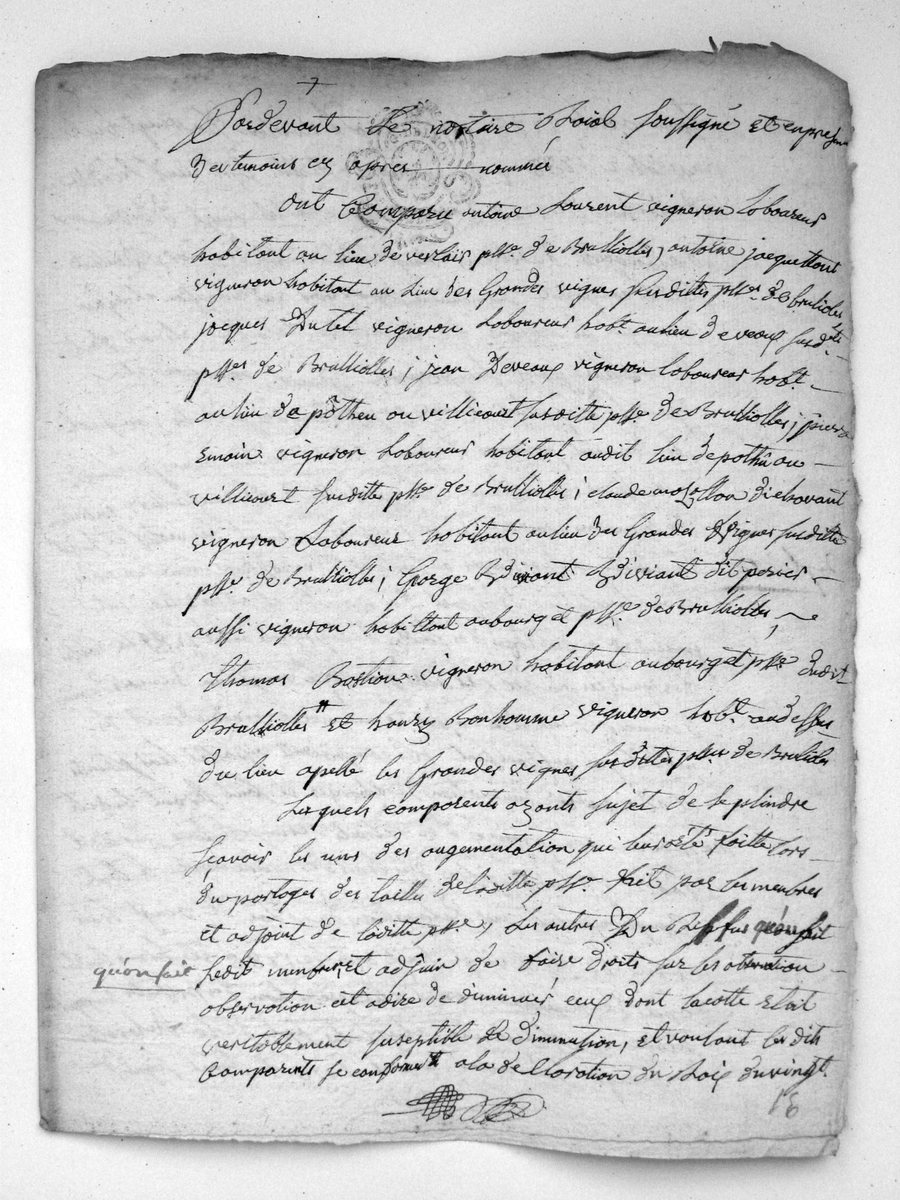 Pardevant Le notaire Roial soussigné et en presence
des temoins cy apres nommés
ont Comparu antoine Laurent vigneron laboureur
habitant au lieu de verlais psse. de Brulliolles, antoine jacquettont
vigneron habitant au Lieu des Grandes vignes susditte psse. de brulioles
jacques Dutel vigneron Laboureur habt. au lieu de veaux susdte.
psse. de Brulliolles ; jean Deveaux vigneron laboureur habt.
au lieu de pôtheu ou villicourt susditte psse. de Brulliolles ; pierre
vigneron laboureur habitant audit lieu de ou
villicourt susditte psse. de Brulliolles ; claude dit chavant
vigneron Laboureur habitant au lieu des Grandes Vignes susditte
psse. de Brulliolles ; George dit perier
aussi vigneron habittant au bourg et psse. de Brulliolles ,
Thomas Bastion vigneron habitant au bourg et psse. dudit
Brulliolles et hanry Bonhomme vigneron habt. au dessus
du lieu apellé les Grandes vignes susdittes psse. de Brulioles
Lesquels comparents ayants sujet de se plindre
sçavoir les uns des augementation qui leur a été faitte lors
du partages des tailles de laditte psse. fait par les menbres
et adjoint de laditte psse. , Les autres Du Reffus qu'on fait
qu'on fait
lesdit menbres et adjoin de faire droits sur les
observation cet a dire de diminuer ceux dont la cotte etait
veritablement suseptible de diminution, et voulant les dits
Comparents se conformer a la dellaration du Roix du vingt